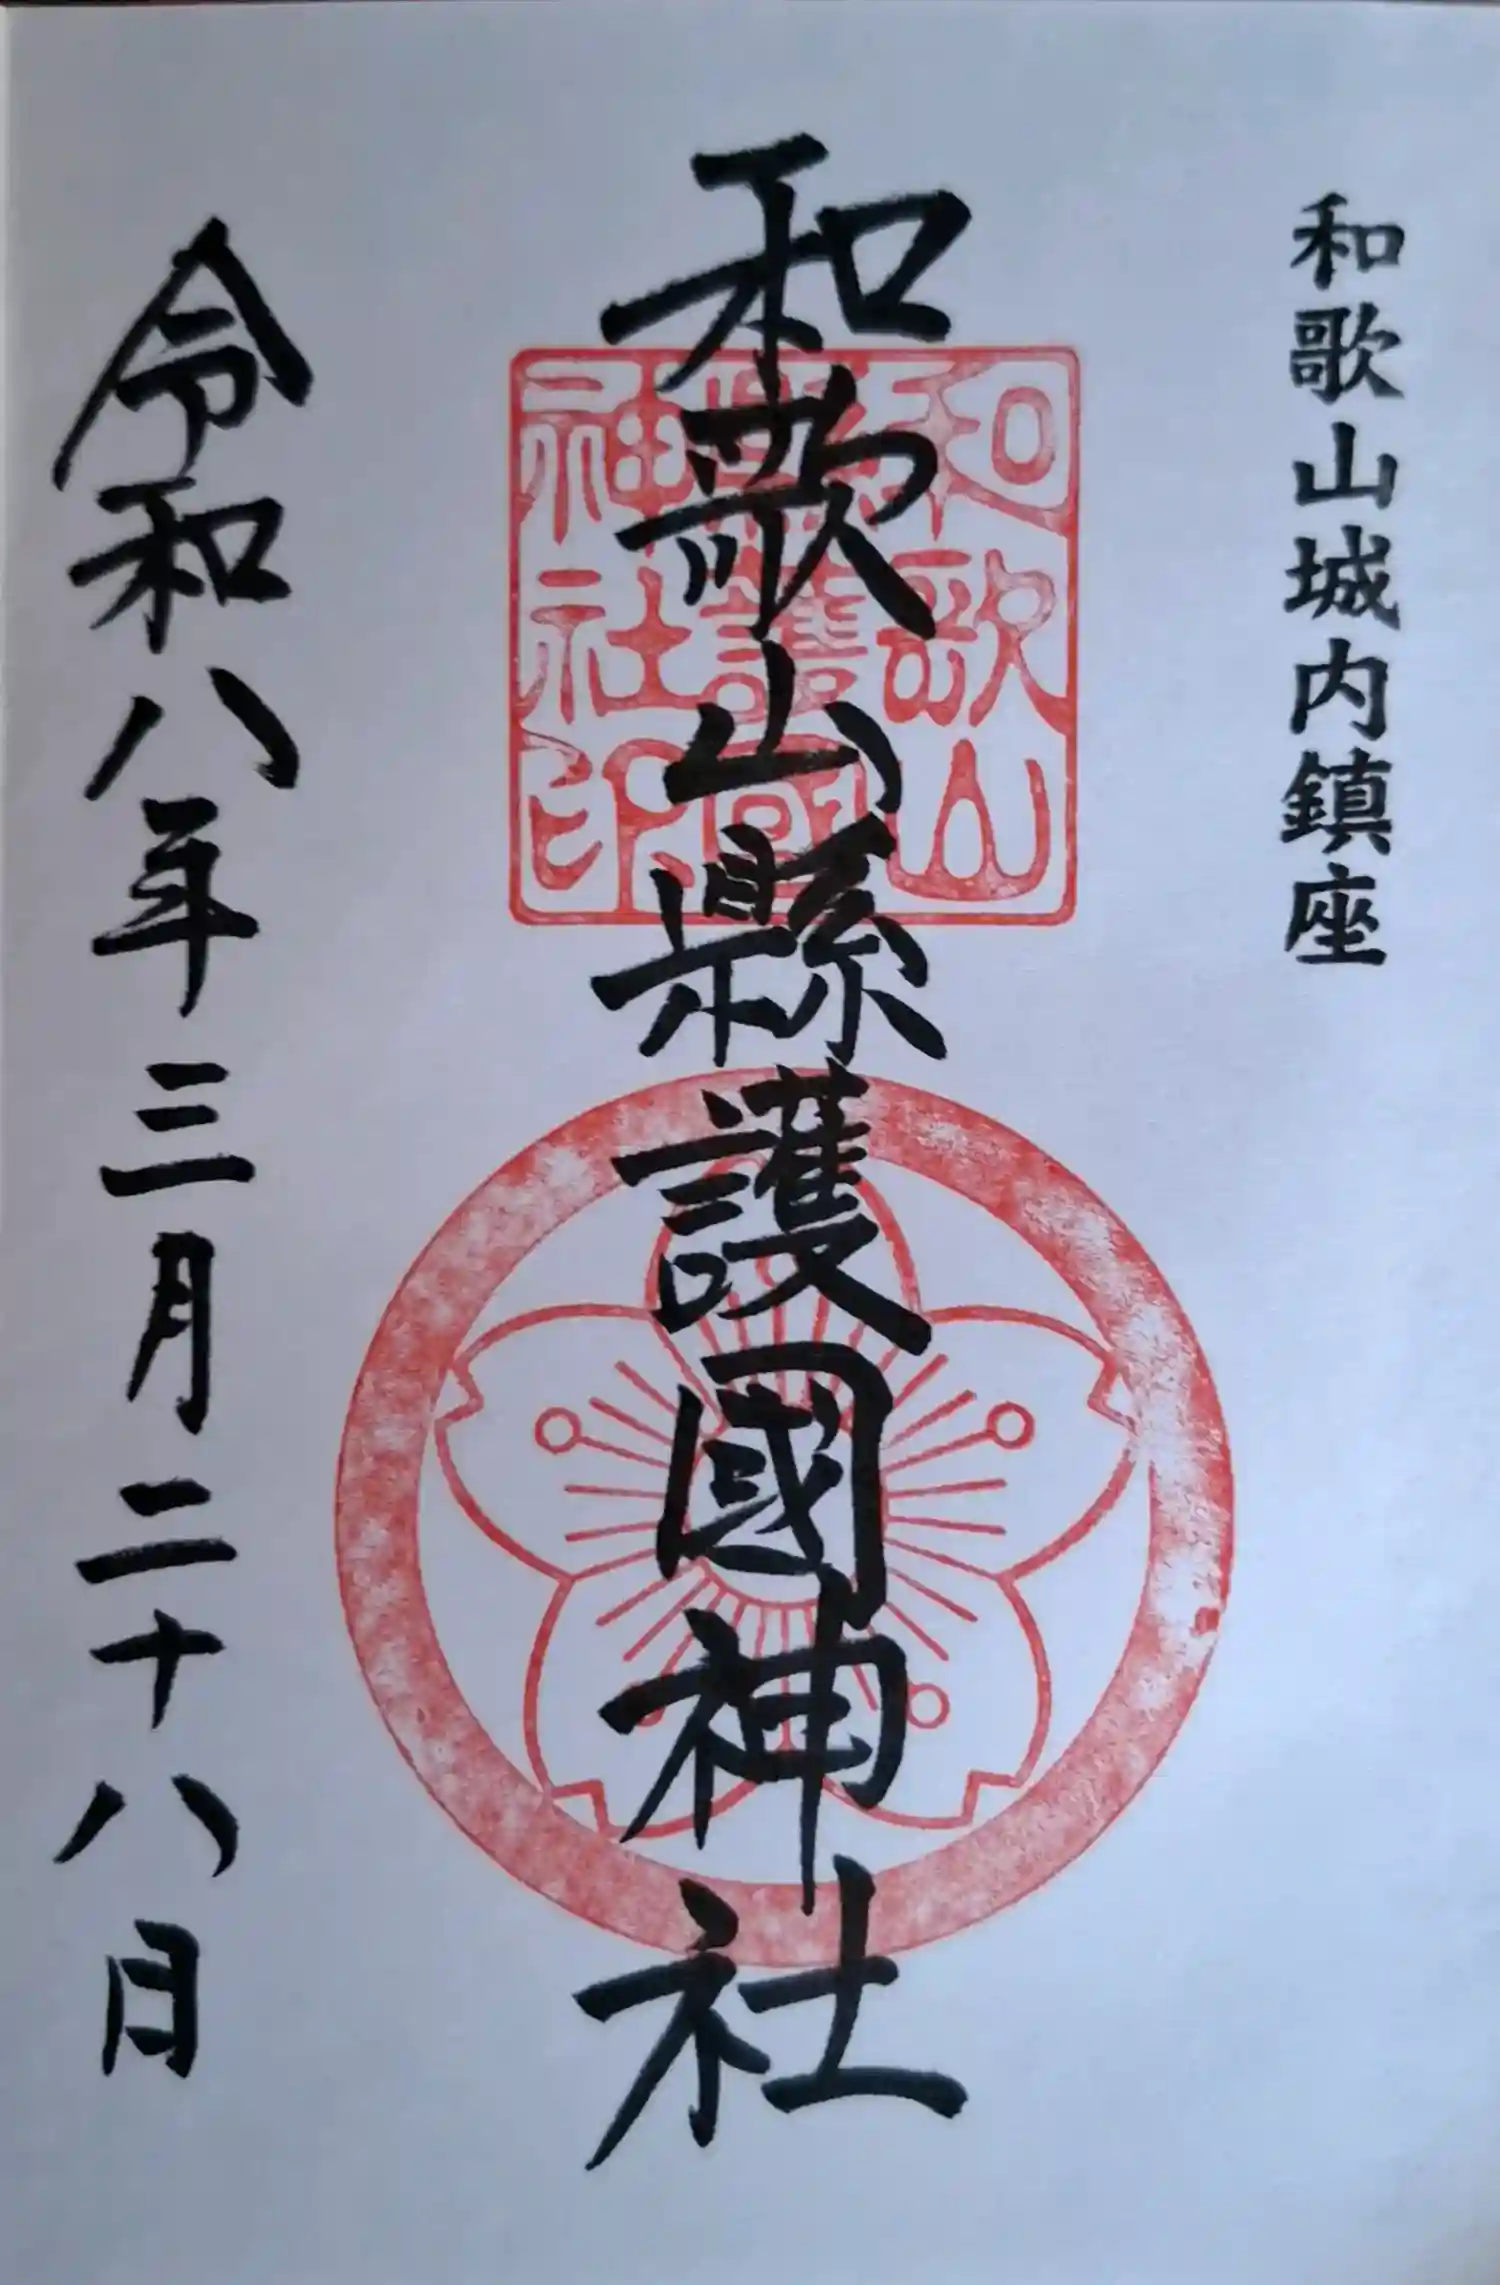 和歌山城内鎮座
和歌山縣護國神社
和歌山
縣護國
神社印
令和八年三月二十八日